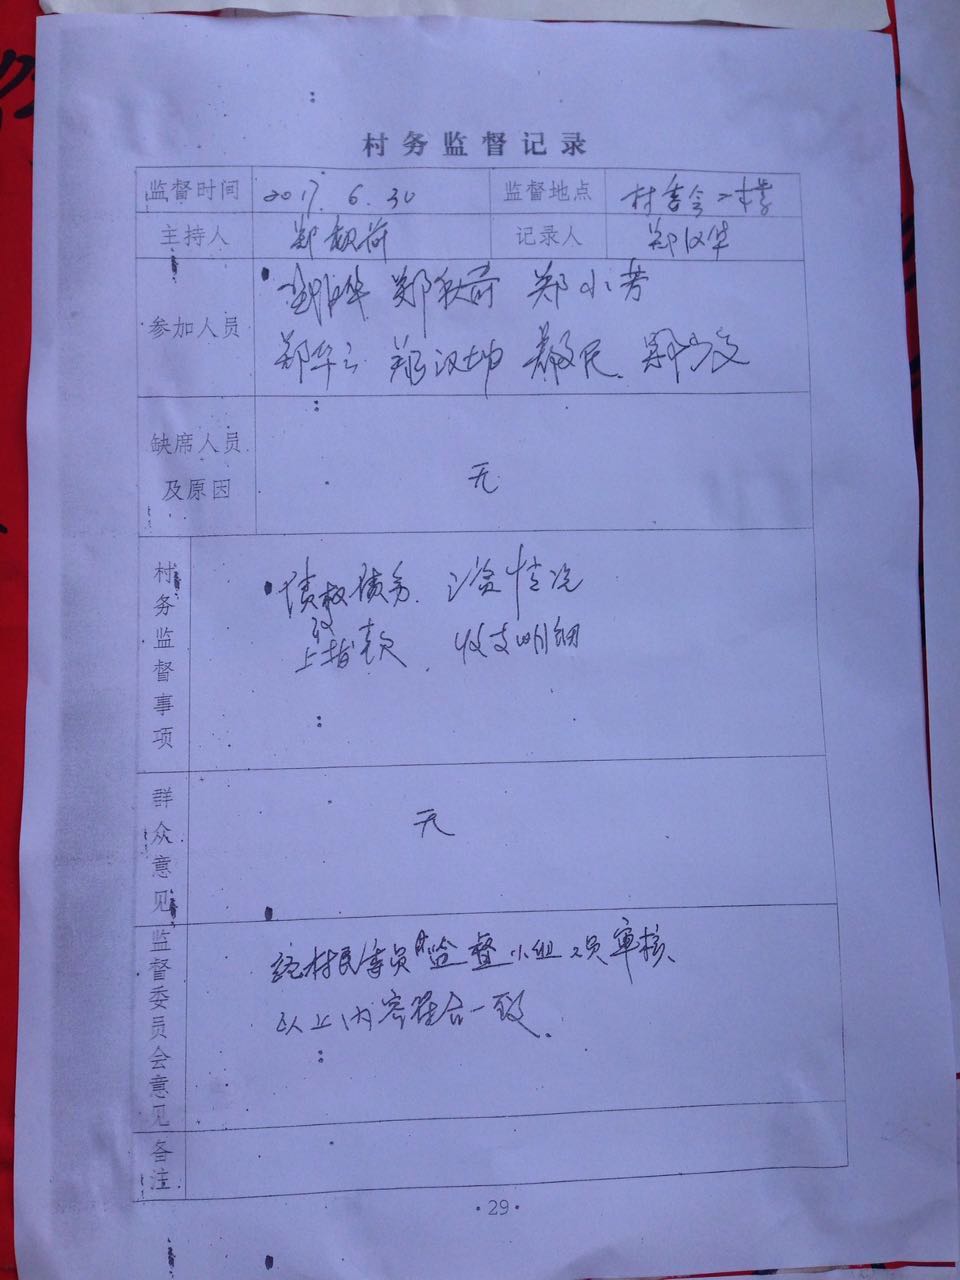 村务监督记录
监督时间 2017.6.30 监督地点 村委会二楼
主持人 郑 记录人 郑汉华
参加人员 郑秋荷 郑小芳
郑华云 郑汉坤
缺席人员
及原因 无
村务监督事项 债权债务、 情况
上 款、收支明细
群众意见 无
监督委员会意见 经村民委员会监督小组人员审核、
以上内容符合一致。
备注
·29·